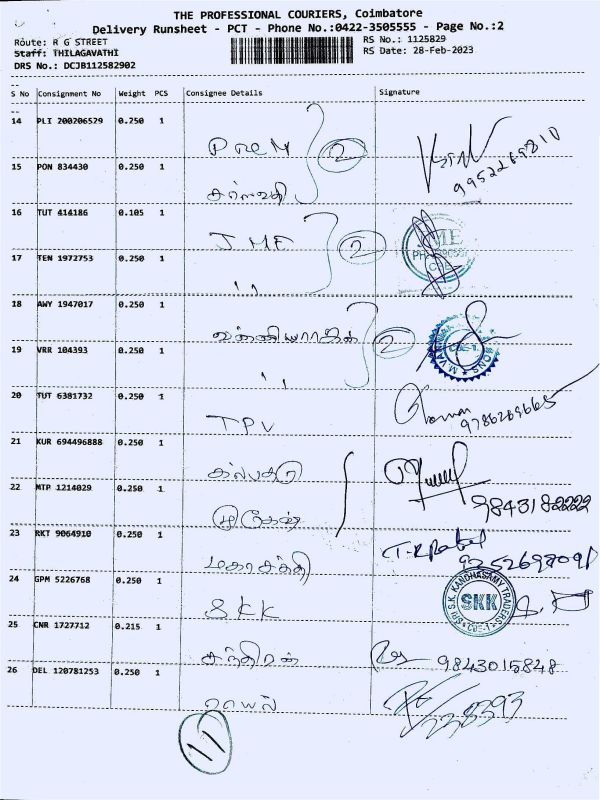 THE PROFESSIONAL COURIERS, Coimbatore
Delivery Runsheet - PCT - Phone No.:0422-3505555 - Page No.:2
Route: R G STREET
RS No.: 1125829
Staff: THILAGAVATHI
RS Date: 28-Feb-2023
DRS No.: DCJB112582902
S No Consignment No Weight PCS Consignee Details Signature
14 PLI 200206529 0.250 1
Prem 2
15 PON 834430 0.250 1
9952269810
16 TUT 414186 0.105 1
JMF 2
17 TEN 1972753 0.250 1
,,
18 AWY 1947017 0.250 1
2
19 VRR 104393 0.250 1
,,
20 TUT 6381732 0.250 1
TPV 9786209665
21 KUR 694496888 0.250 1
கல்பதரு
22 MTP 1214029 0.250 1
முருகேஷ் 9843182222
23 RKT 9064910 0.250 1
மகாசக்தி T.R.Patel
24 GPM 5226768 0.250 1
SKK SRI S.K. KANDHASAMY TRADERS SKK
25 CNR 1727712 0.215 1
9843015848
26 DEL 120781253 0.250 1
ராயல்
11